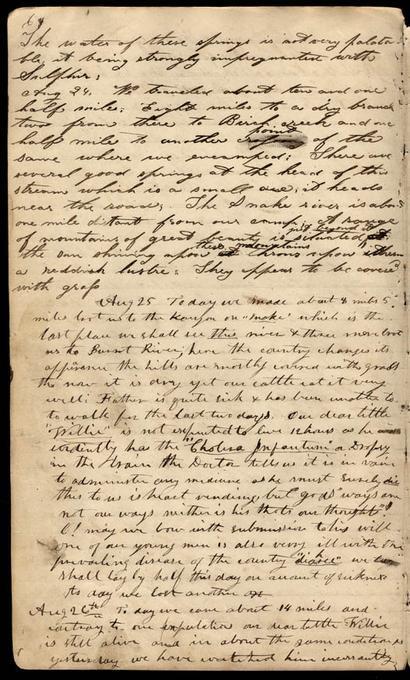 69
The water of these springs is not very palata
ble, it being strongly impregnated with
Sulphur;
Aug 24. We traveled about ten and one
half miles: Eight miles to a dry branch
two from there to Birch creek and one
half mile to another point of the
same where we encamped; There are
several good springs at the head of this
stream which is a small one; it heads
near the road; The Snake river is about
one mile distant from our camp; A range
of mountains of great beauty is situated just beyond it
the sun shining upon these mountains throws upon them
a reddish lustre; They appear to be covered
with grass
Aug 25 To day we made about 8 miles 5
miles brot us to the Kanyon on "Snake" which is the
last place we shall see this river & three more brot
us to Burnt River, here the country changes its
appearance the hills are mostly covered with grass
tho now it is dry yet our cattle eat it very
well: Father is quite sick & has been unable to
to walk for the last two days. Our dear little
"Willie" is not expected to live 12 hours as he
evidently has the "Cholera Infantum" or Dropsy
in the brain the Doctor tells us it is in vain
to administer any medicine as he must surely die
this to us is heart rending but god's ways are
not our ways neither is his thots our thoughts"
O! may we bow with submission to his will
one of our young men is also very ill with the
prevailing disease of the country we
shall lay by half this day on account of sickness
to day we lost another ox
Aug 26th To day we came about 14 miles and
contrary to our expectation our dear little Willie
is still alive and in about the same condition as
yesterday we have watched him incessantly